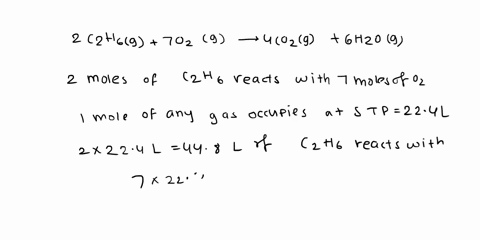 2 C2H6(g) + 7O2 (g) → 4CO2(g) + 6H2O (g)
2 moles of C2H6 reacts with 7 moles of O2
1 mole of any gas occupies at STP = 22.4L
2 x 22.4 L = 44.8 L of C2H6 reacts with
7 x 22.